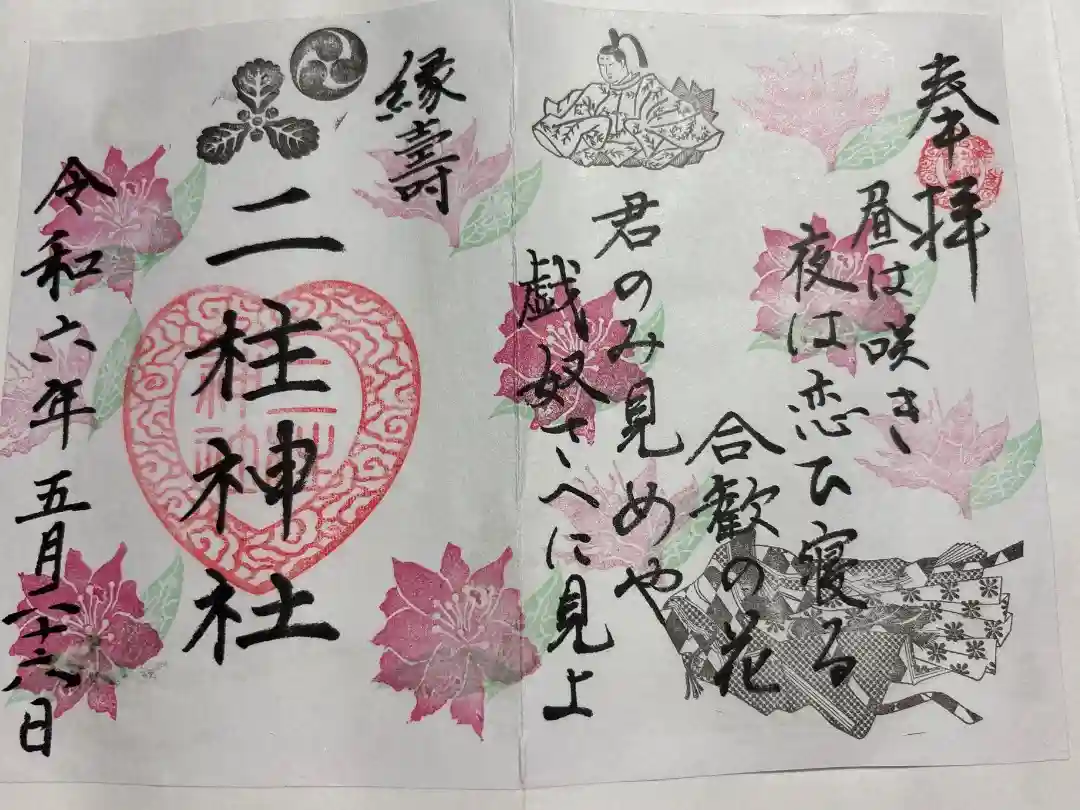 奉拝
昼は咲き
夜は恋ひ寝る
合歓の花
君のみ見めや
戯奴さへに見上
縁壽
二柱神社
令和六年五月二十六日